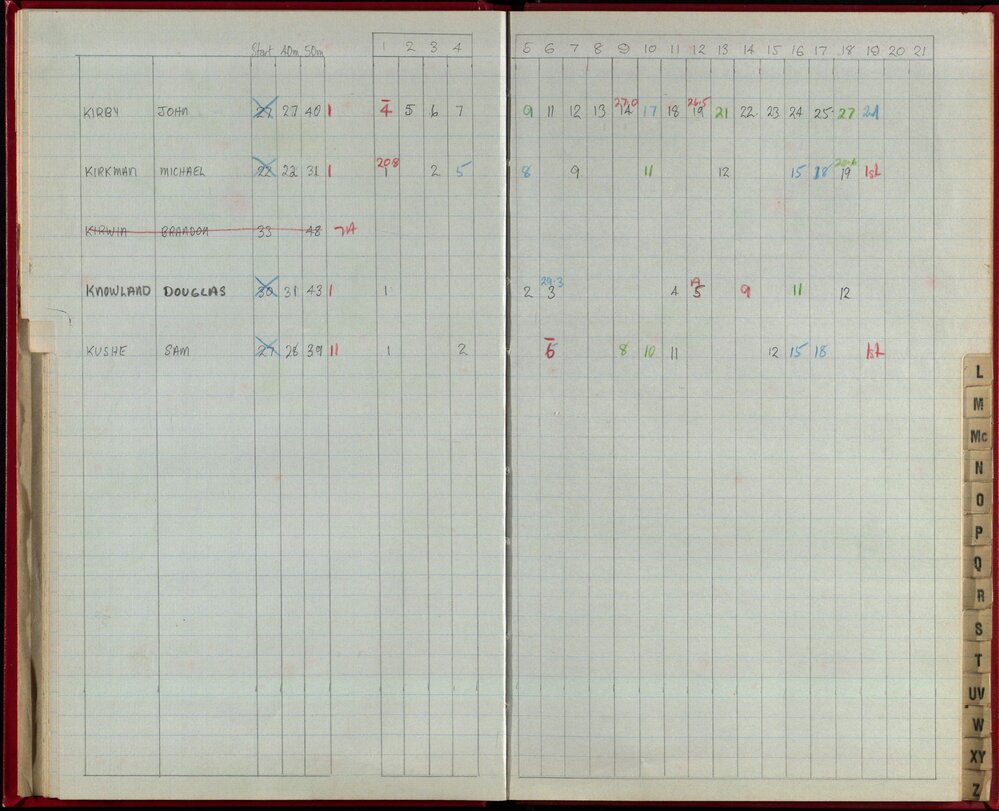 Start 40m 50m 1 2 3 4 5 6 7 8 9 10 11 12 13 14 15 16 17 18 19 20 21
27.0 26.5
KIRBY JOHN 27 40 1 4 5 6 7 9 11 12 13 14 17 18 19 21 22 23 24 25 27
20.8 20.6
KIRKMAN MICHAEL 22 22 31 1 1 2 5 8 9 11 12 15 18 19 1st
KIRWIN BRANDON 33 48
29.3 A
KNOWLAND DOUGLAS 30 31 43 1 1 2 3 4 5 9 11 12
KUSHE SAM 27 28 39 11 1 2 6 8 10 11 12 15 18 1st
L
M
Mc
N
O
P
Q
R
S
T
UV
W
XY
Z